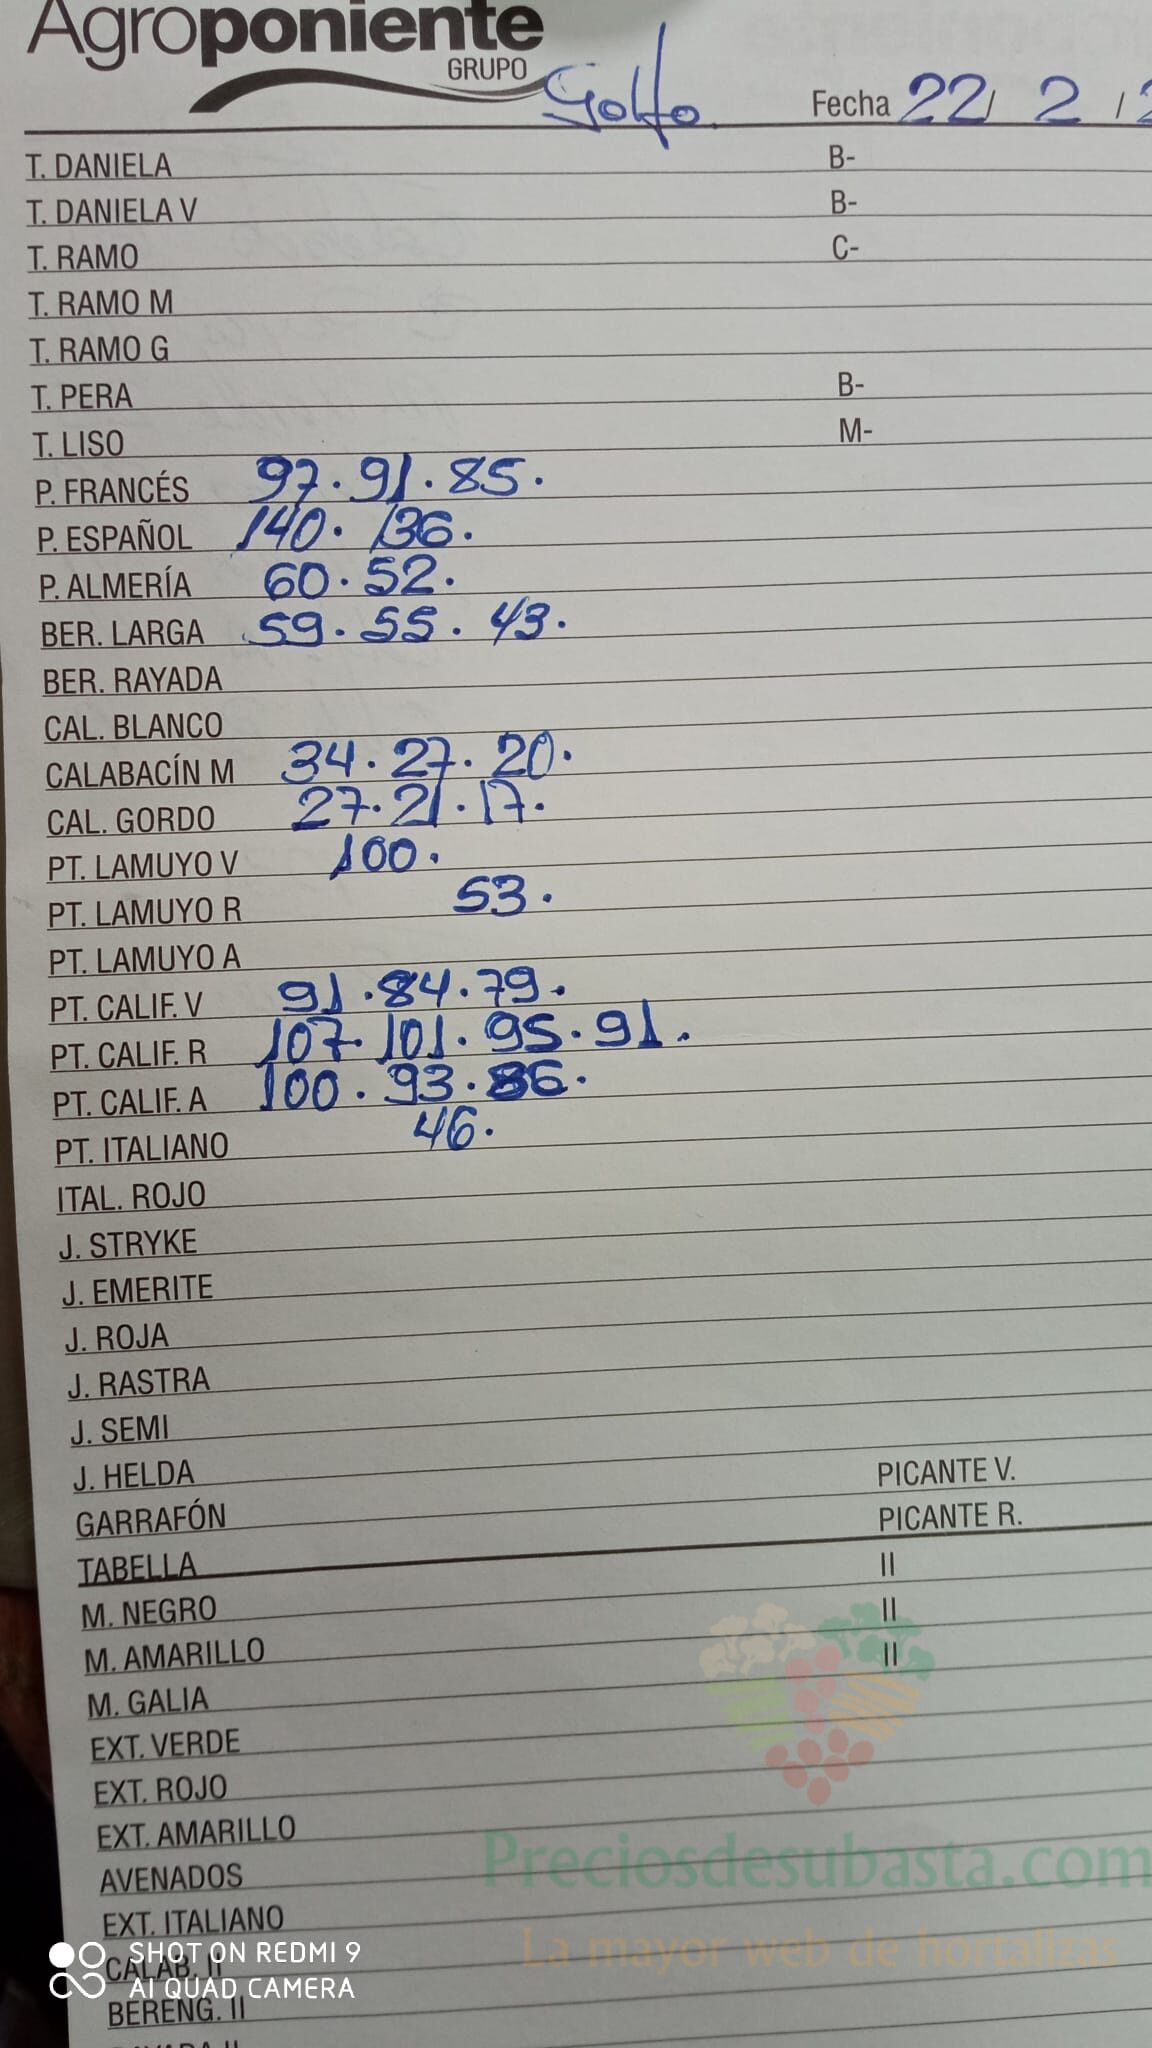 Agroponiente
GRUPO
Golfo
Fecha 22/ 2 /
T. DANIELA B-
T. DANIELA V B-
T. RAMO C-
T. RAMO M
T. RAMO G
T. PERA B-
T. LISO M-
P. FRANCÉS 97. 91. 85.
P. ESPAÑOL 140. 136.
P. ALMERÍA 60. 52.
BER. LARGA 59. 55. 43.
BER. RAYADA
CAL. BLANCO
CALABACÍN M 34. 27. 20.
CAL. GORDO 27. 21. 17.
PT. LAMUYO V 100.
PT. LAMUYO R 53.
PT. LAMUYO A
PT. CALIF. V 91. 84. 79.
PT. CALIF. R 107. 101. 95. 91.
PT. CALIF. A 100. 93. 86.
PT. ITALIANO 46.
ITAL. ROJO
J. STRYKE
J. EMERITE
J. ROJA
J. RASTRA
J. SEMI
J. HELDA PICANTE V.
GARRAFÓN PICANTE R.
TABELLA II
M. NEGRO II
M. AMARILLO II
M. GALIA
EXT. VERDE
EXT. ROJO
EXT. AMARILLO
AVENADOS
EXT. ITALIANO
CALAB. II
BERENG. II
Preciosdesubasta.com
La mayor web de hortalizas
SHOT ON REDMI 9
AI QUAD CAMERA